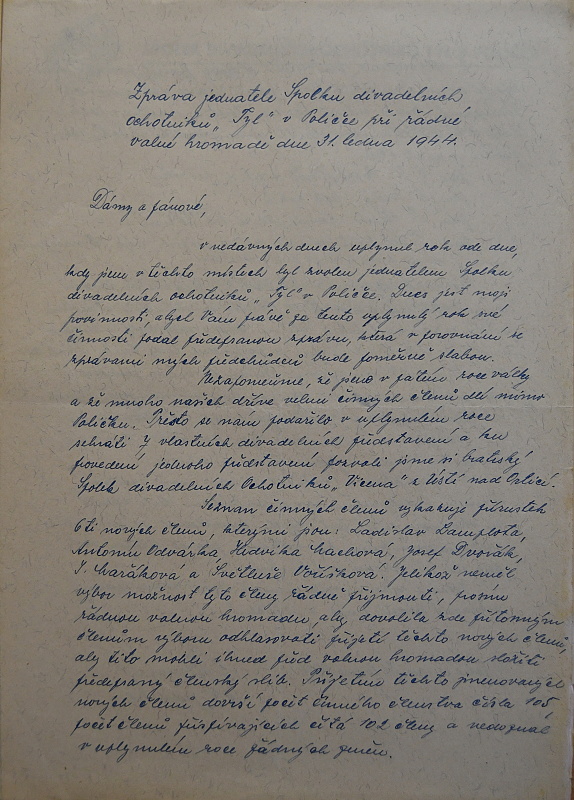 Zpráva jednatele Spolku divadelních
ochotníků „Tyl" v Poličce při řádné
valné hromadě dne 31. ledna 1944.
Dámy a pánové,
v nedávných dnech uplynul rok ode dne,
kdy jsem v těchto místech byl zvolen jednatelem Spolku
divadelních ochotníků „Tyl" v Poličce. Dnes jest mojí
povinností, abych Vám právě za tento uplynulý rok své
činnosti podal předepsanou zprávu, která v porovnání se
zprávami mých předchůdců bude poměrně slabou.
Nezapomeňme, že jsme v pátém roce války
a že mnoho našich dříve velmi činných členů dlí mimo
Poličku. Přesto se nám podařilo v uplynulém roce
sehráti 7 vlastních divadelních představení a ku
provedení jednoho představení pozvali jsme si bratrský
Spolek divadelních Ochotníků „Vicena" z Ústí nad Orlicí.
Seznam činných členů vykazuje přírůstek
6ti nových členů, kterými jsou: Ladislav Zamplota,
Antonín Odvárka, Hedvika Machová, Josef Dvořák,
Světluše Voříšková. Jelikož neměl
výbor možnost tyto členy řádně přijmouti, prosím
řádnou valnou hromadu, aby dovolila zde přítomným
členům výboru odhlasovati přijetí těchto nových členů,
aby tito mohli ihned před valnou hromadou složiti
předepsaný členský slib. Přijetím těchto jmenovaných
nových členů dovrší počet činného členstva čísla 105
počet členů přispívajících čítá 102 členy a nedoznal
v uplynulém roce žádných změn.